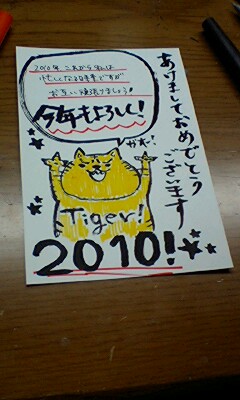 あけましておめでとう
ございます
2010年、これからお互いは
忙しくなる時季ですが
お互い頑張りましょう!
今年もよろしく!
やォー!
Tiger!
2010!